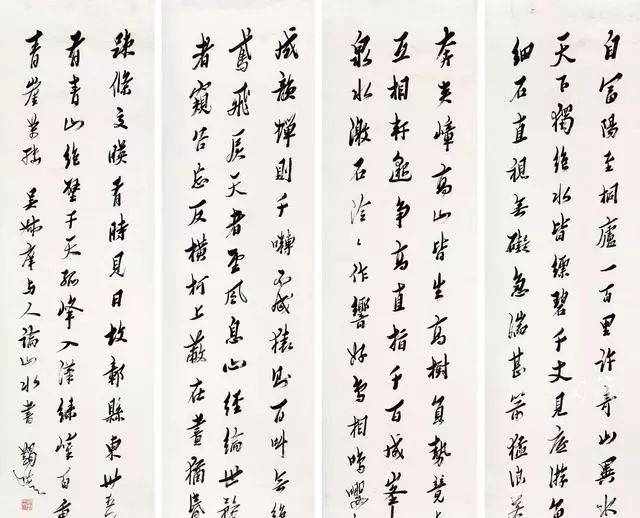 自富陽至桐廬一百里許奇山異水
天下獨絕水皆縹碧千丈見底游魚
細石直視無礙急湍甚箭猛浪若
奔夾嶂高山皆生高樹負勢競
互相軒邈爭高直指千百成峯
泉水激石泠〻作響好鳥相鳴嚶
成韻蟬則千囀不成猿則百叫無絕
鳶飛戾天者望風息心經綸世務
者窺谷忘反橫柯上蔽在晝猶昏
疎條交映有時見日故鄣縣東卅五
有青山絕壁干天孤峰入漢綠嶂百重
青崖萬轉 吳叔庠與人論山水書